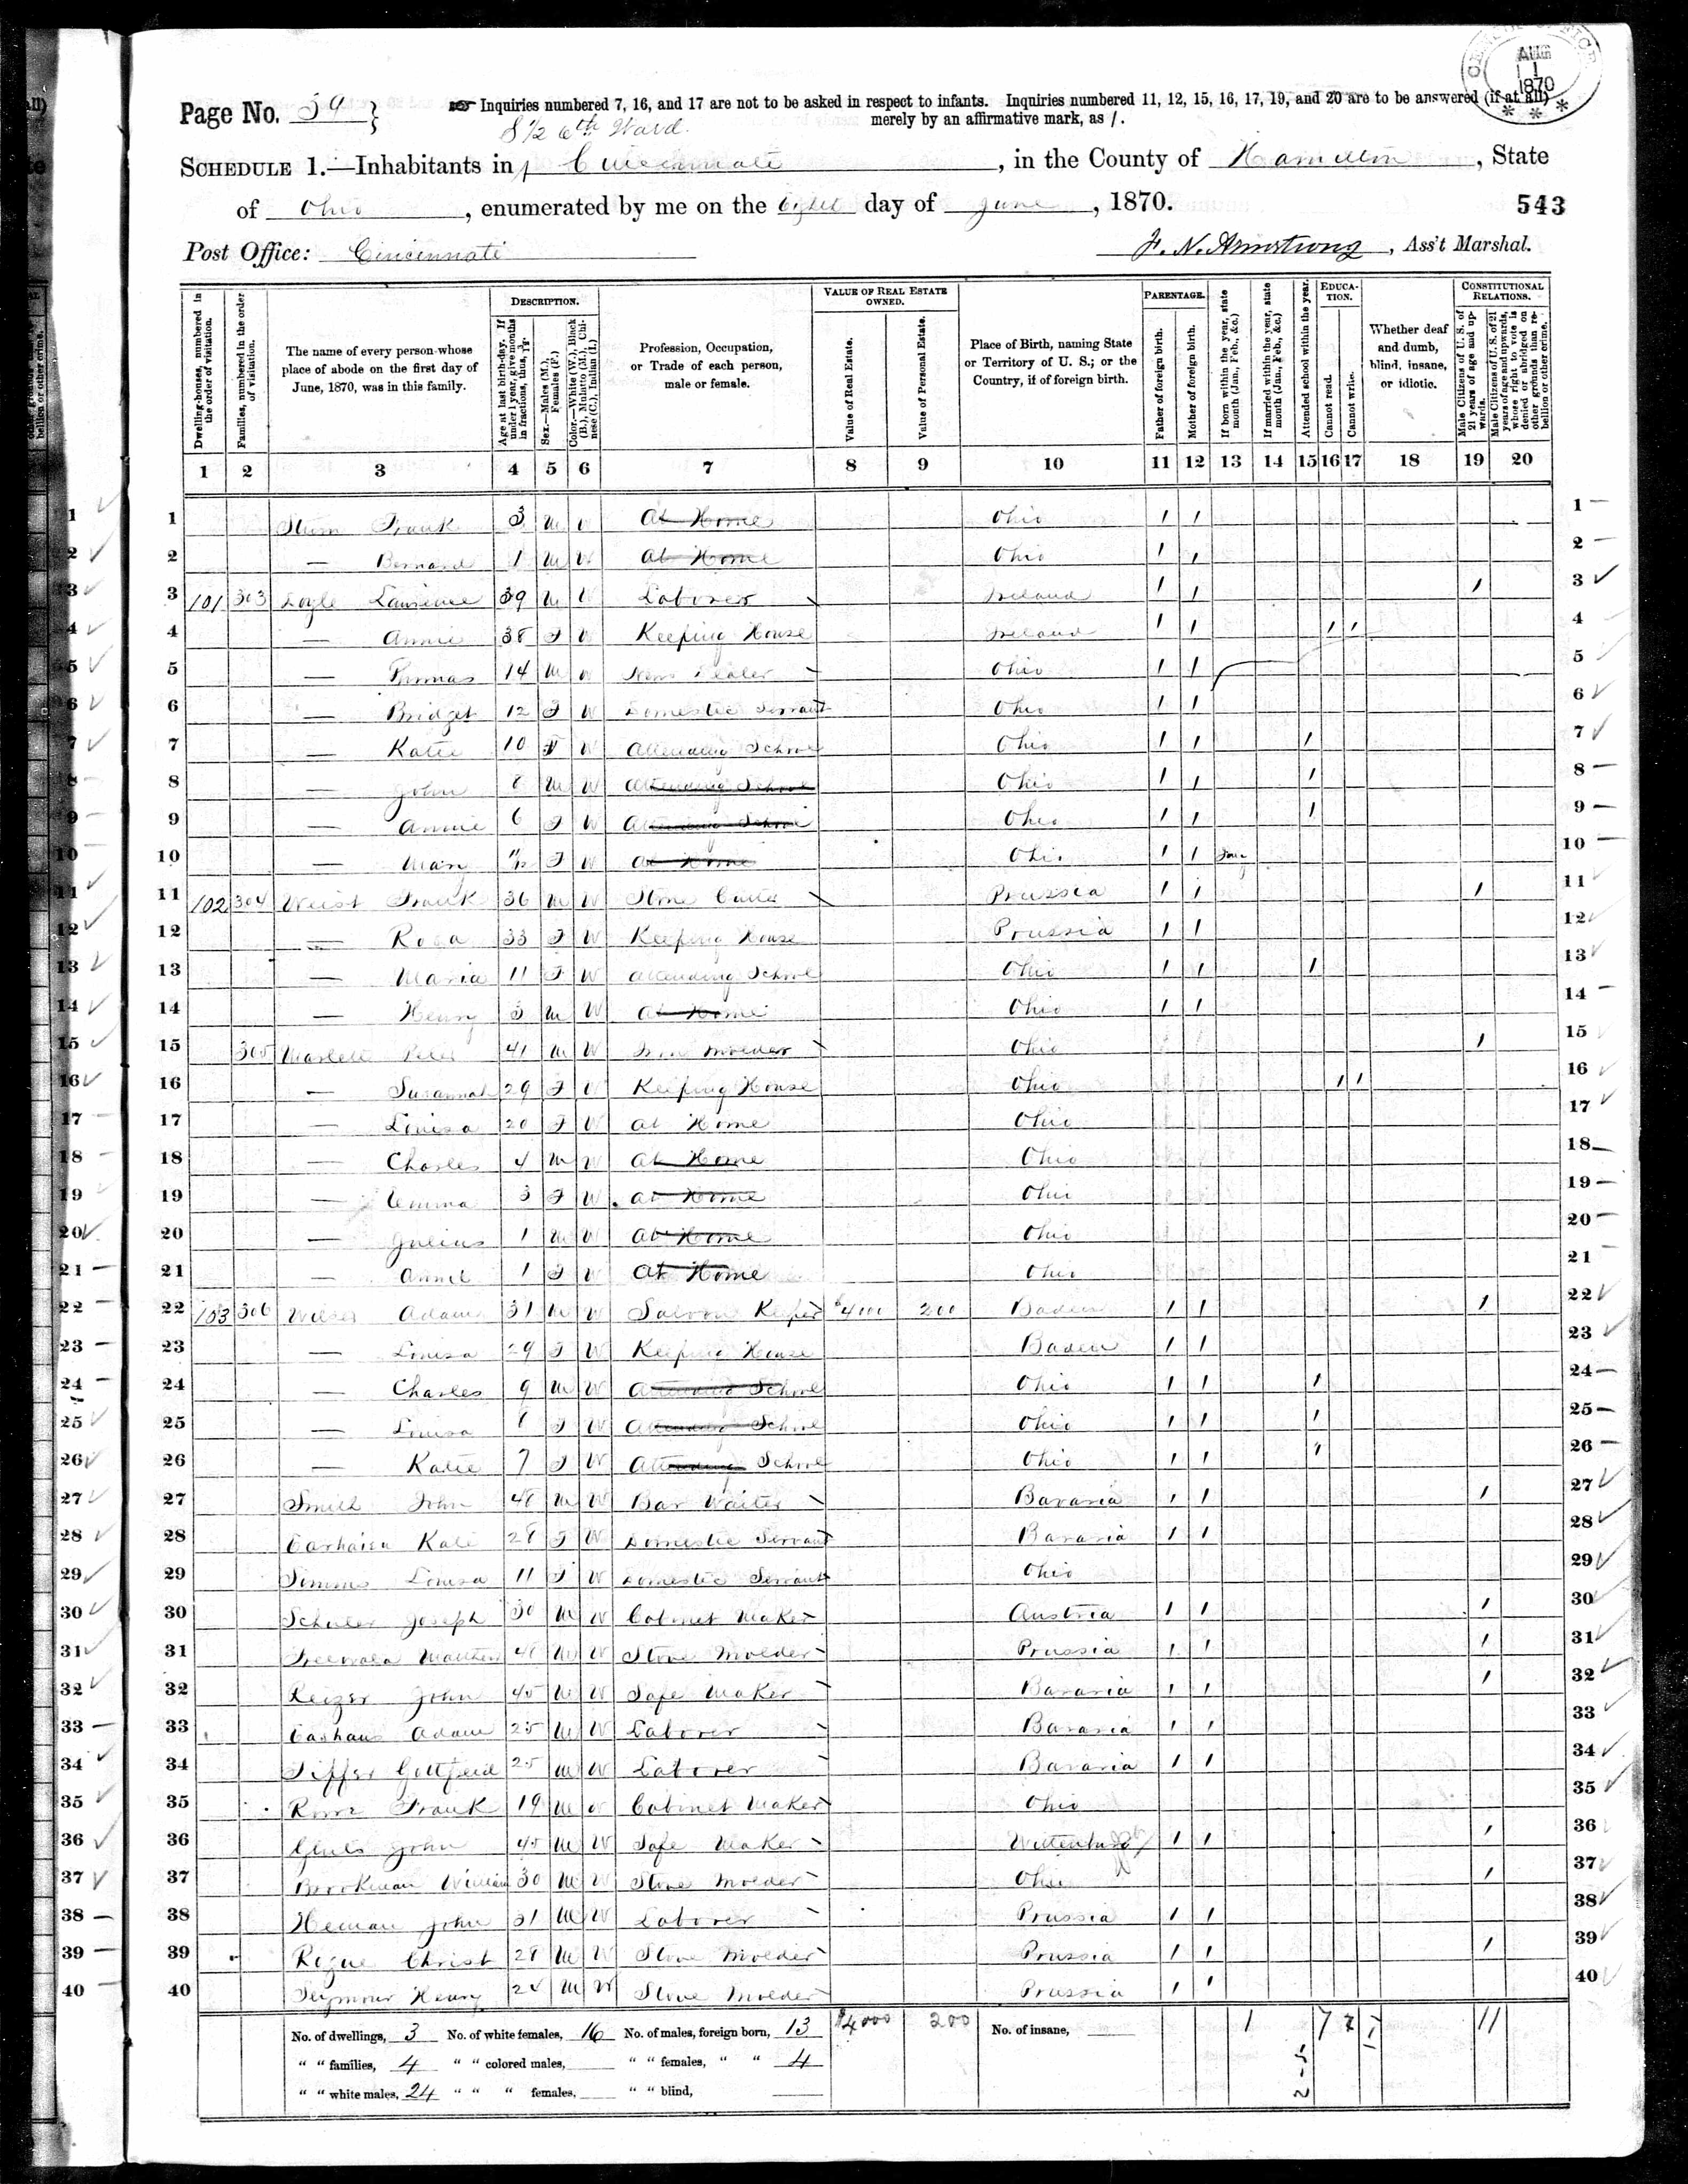 AUG
1
1870
Page No. 39
Inquiries numbered 7, 16, and 17 are not to be asked in respect to infants. Inquiries numbered 11, 12, 15, 16, 17, 19, and 20 are to be answered (if at all)
merely by an affirmative mark, as /.
8 1/2 6th Ward.
SCHEDULE 1.—Inhabitants in Cincinnati, in the County of Hamilton, State
of Ohio, enumerated by me on the day of June, 1870.
543
Post Office: Cincinnati
F. N. Armstrong, Ass't Marshal.
DESCRIPTION.
VALUE OF REAL ESTATE OWNED.
PARENTAGE.
EDUCATION.
CONSTITUTIONAL RELATIONS.
Dwelling-houses, numbered in the order of visitation.
Families, numbered in the order of visitation.
The name of every person whose place of abode on the first day of June, 1870, was in this family.
Age at last birth-day. If under 1 year, give months in fractions, thus, 3/12.
Sex.—Males (M.), Females (F.)
Color.—White (W.), Black (B.), Mulatto (M.), Chinese (C.), Indian (I.)
Profession, Occupation, or Trade of each person, male or female.
Value of Real Estate.
Value of Personal Estate.
Place of Birth, naming State or Territory of U. S.; or the Country, if of foreign birth.
Father of foreign birth.
Mother of foreign birth.
If born within the year, state month (Jan., Feb., &c.)
If married within the year, state month (Jan., Feb., &c.)
Attended school within the year.
Cannot read.
Cannot write.
Whether deaf and dumb, blind, insane, or idiotic.
Male Citizens of U. S. of 21 years of age and upwards.
Male Citizens of U. S. of 21 years of age and upwards, whose right to vote is denied or abridged on other grounds than rebellion or other crime.
1 2 3 4 5 6 7 8 9 10 11 12 13 14 15 16 17 18 19 20
1 Frank 3 M W At Home Ohio / / 1
2 — Bernard 1 M W At Home Ohio / / 2
3 101 303 Doyle Laurence 39 M W Laborer Ireland / / / 3
4 — Annie 38 F W Keeping House Ireland / / / / 4
5 — Thomas 14 M W News Dealer Ohio / / 5
6 — Bridget 12 F W Domestic Servant Ohio / / 6
7 — Katie 10 F W Attending School Ohio / / / 7
8 — John 8 M W Attending School Ohio / / / 8
9 — Annie 6 F W Attending School Ohio / / / 9
10 — Mary F W At Home Ohio / / 10
11 102 304 Weist Frank 36 M W Stone Cutter Prussia / / / 11
12 — Rosa 33 F W Keeping House Prussia / / 12
13 — Maria 11 F W Attending School Ohio / / / 13
14 — Henry 3 M W At Home Ohio / / 14
15 305 Peter 41 M W Iron Molder Ohio / 15
16 — Susannah 29 F W Keeping House Ohio / / 16
17 — Louisa 20 F W At Home Ohio 17
18 — Charles 4 M W At Home Ohio 18
19 — Emma 3 F W At Home Ohio 19
20 — Julius 1 M W At Home Ohio 20
21 — Annie 1 F W At Home Ohio 21
22 103 306 Adam 31 M W Saloon Keeper $4000 200 Baden / / / 22
23 — Louisa 29 F W Keeping House Baden / / 23
24 — Charles 9 M W Attending School Ohio / / / 24
25 — Louisa 8 F W Attending School Ohio / / / 25
26 — Katie 7 F W Attending School Ohio / / / 26
27 Smith John 48 M W Bar Waiter Bavaria / / / 27
28 Kate 28 F W Domestic Servant Bavaria / / 28
29 Simms Louisa 11 F W Domestic Servant Ohio 29
30 Schuler Joseph 30 M W Cabinet Maker Austria / / / 30
31 M W Stove Molder Prussia / / / 31
32 Keizer John 45 M W Safe Maker Bavaria / / / 32
33 Adam 25 M W Laborer Bavaria / / 33
34 Gottfried 25 M W Laborer Bavaria / / 34
35 Frank 19 M W Cabinet Maker Ohio 35
36 John 45 M W Safe Maker / / / 36
37 Brookman William 30 M W Stove Molder Ohio / 37
38 Heman John 31 M W Laborer Prussia / / 38
39 Christ 28 M W Stove Molder Prussia / / / 39
40 Seymour Henry 24 M W Stove Molder Prussia / / 40
No. of dwellings, 3 No. of white females, 16 No. of males, foreign born, 13 $4000 200 No. of insane, 1 11
" " families, 4 " " colored males, " " females, " " 4
" " white males, 24 " " " females, " " blind,